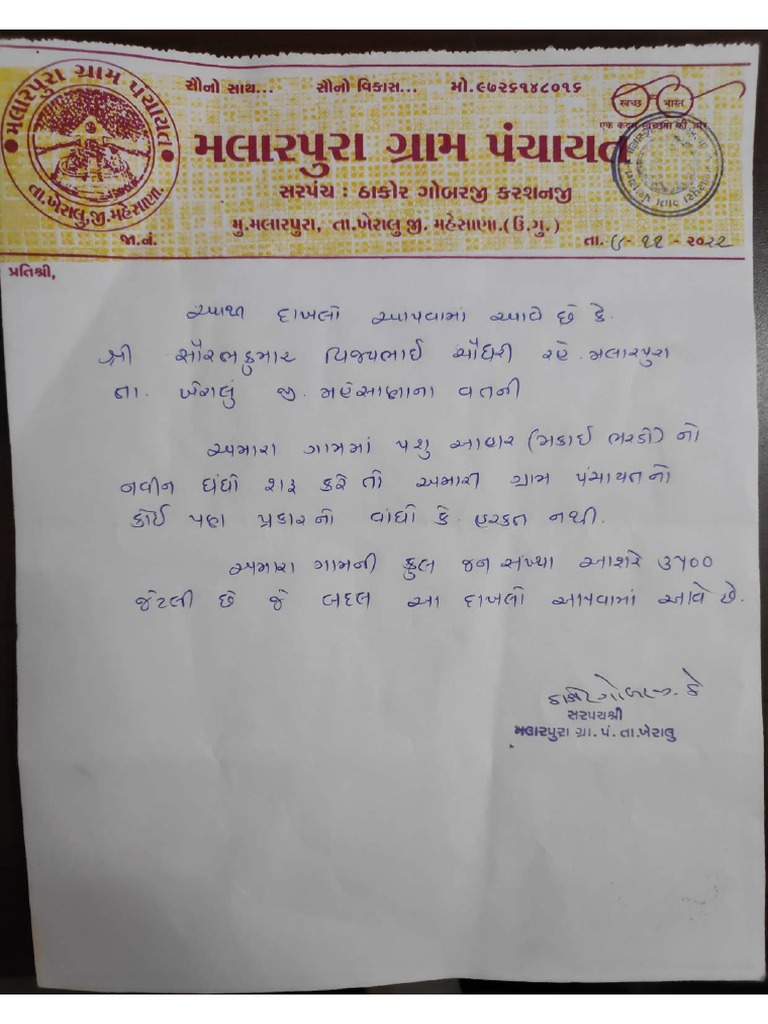 સૌનો સાથ... સૌનો વિકાસ... મો.૯૭૨૬૧૪૮૦૧૬
સ્વચ્છ ભારત
એક કદમ સ્વચ્છતા કી ઓર
મલારપુરા ગ્રામ પંચાયત
તા.ખેરાલુ,જી.મહેસાણા.
મલારપુરા ગ્રામ પંચાયત
સરપંચ : ઠાકોર ગોબરજી કરશનજી
મુ.મલારપુરા, તા.ખેરાલુ જી. મહેસાણા.(ઉ.ગુ.)
જા.નં. તા. ૯-૧૧-૨૦૨૨
પ્રતિશ્રી,
આથી દાખલો આપવામાં આવે છે કે.
શ્રી સૌરભકુમાર વિજયભાઈ ચૌધરી રહે.મલારપુરા
તા. ખેરાલું જી. મહેસાણાના વતની
અમારા ગામમાં પશુ આહાર (મકાઈ ભરડો) નો
નવીન ધંધો શરૂ કરે તો અમારી ગ્રામ પંચાયતનો
કોઈ પણ પ્રકારનો વાંધો કે હરકત નથી.
અમારા ગામની કુલ જન સંખ્યા આશરે ૩૫૦૦
જેટલી છે જે બદલ આ દાખલો આપવામાં આવે છે.
ઠાકોર ગોબરજી. કે
સરપચશ્રી
મલારપુરા ગ્રા.પં.તા.ખેરાલુ